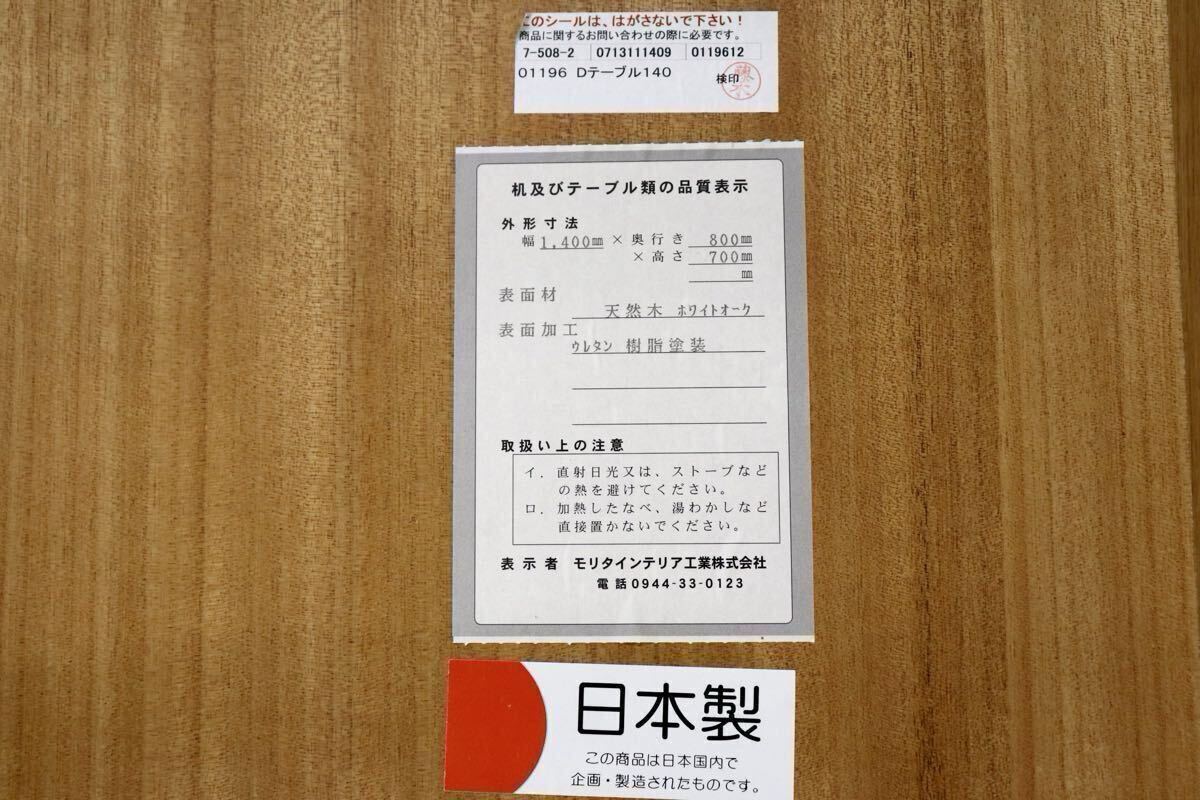 このシールは、はがさないで下さい！
商品に関するお問い合わせの際に必要です。
7-508-2 0713111409 0119612
01196 Dテーブル140 検印
机及びテーブル類の品質表示
外形寸法
幅 1,400㎜ × 奥行き 800㎜
× 高さ 700㎜
㎜
表面材
天然木 ﾎﾜｲﾄｵｰｸ
表面加工
ｳﾚﾀﾝ 樹脂塗装
取扱い上の注意
イ. 直射日光又は、ストーブなど
の熱を避けてください。
ロ. 加熱したなべ、湯わかしなど
直接置かないでください。
表示者 モリタインテリア工業株式会社
電話0944-33-0123
日本製
この商品は日本国内で
企画・製造されたものです。